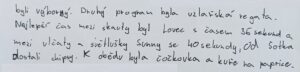 byli výborný. Druhý program byla uzlařská regata.
Nejlepší čas mezi skauty byl Lovec s časem 36 sekund a
mezi vlčaty a světlušky Sunny se 40 sekundy, Od Sotka
dostali chipsy. K obědu byla čočkovka a kuře na paprice.